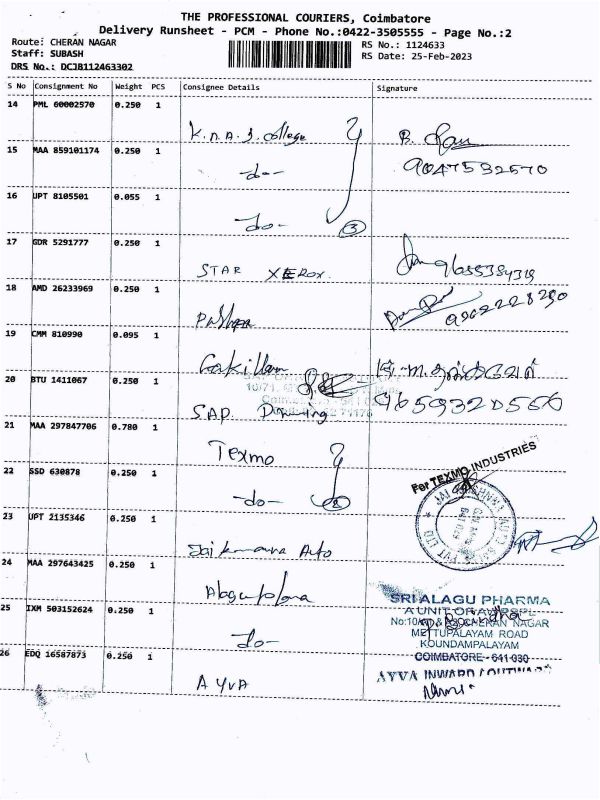 THE PROFESSIONAL COURIERS, Coimbatore
Delivery Runsheet - PCM - Phone No.:0422-3505555 - Page No.:2
Route: CHERAN NAGAR RS No.: 1124633
Staff: SUBASH RS Date: 25-Feb-2023
DRS No.: DCJB112463302
S No Consignment No Weight PCS Consignee Details Signature
14 PML 60002570 0.250 1
K.N.A.J. college
15 MAA 859101174 0.250 1 9047532570
-do-
16 UPT 8105501 0.055 1
-do- 3
17 GDR 5291777 0.250 1
STAR XEROX.
18 AMD 26233969 0.250 1
19 CMM 810990 0.095 1
20 BTU 1411067 0.250 1
S.A.P. 9659320556
21 MAA 297847706 0.780 1
Texmo
For TEXMO INDUSTRIES
22 SSD 630878 0.250 1
-do-
23 UPT 2135346 0.250 1
Auto
24 MAA 297643425 0.250 1
SRI ALAGU PHARMA
25 IXM 503152624 0.250 1
CHERAN NAGAR
-do- METTUPALAYAM ROAD
KOUNDAMPALAYAM
COIMBATORE - 641 030
26 EDQ 16587873 0.250 1
AYVA AYVA INWARD